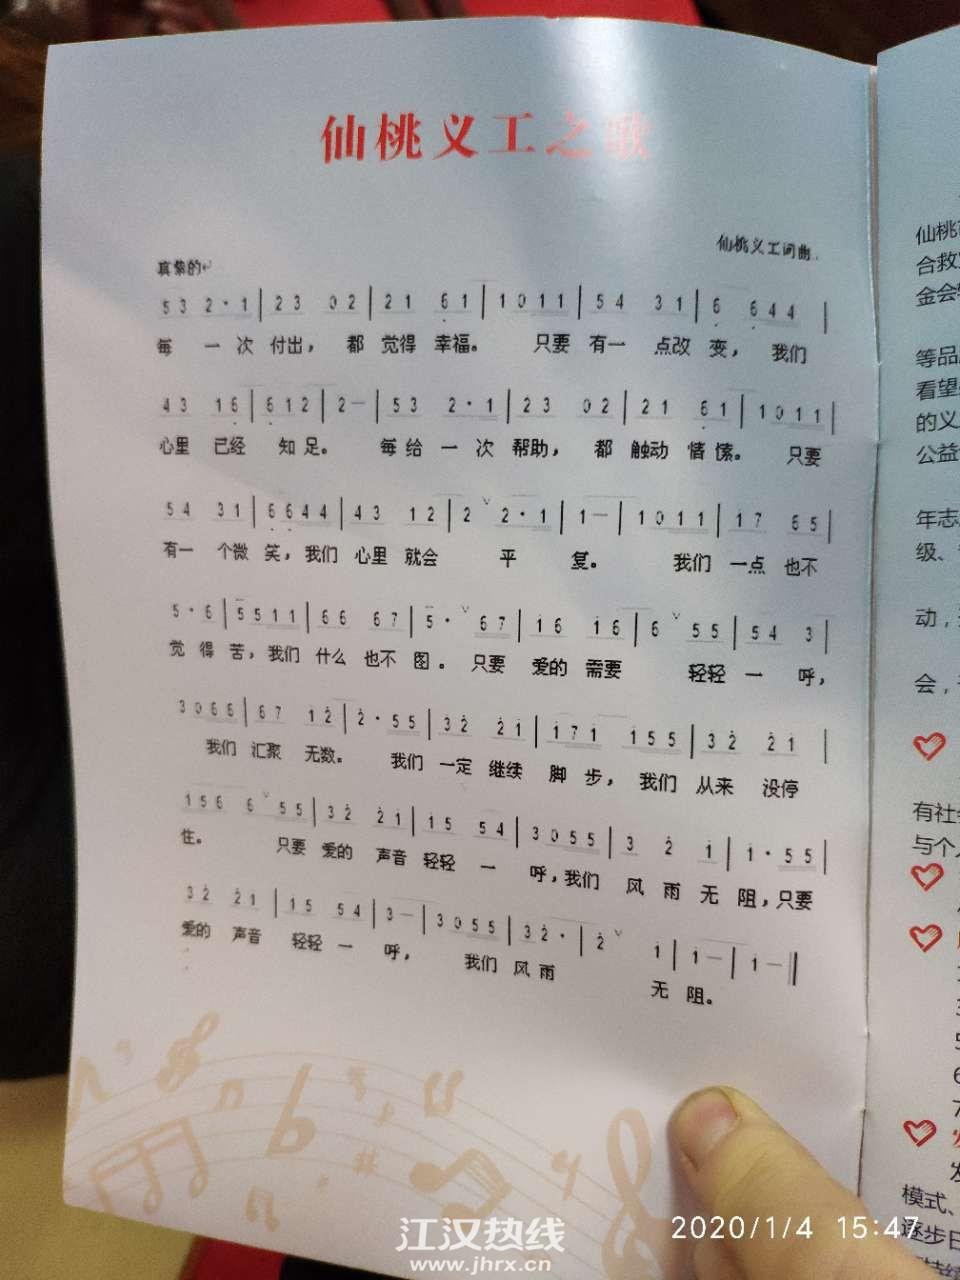 仙桃义工之歌
仙桃义工词曲
真挚的
53 2·1 | 23 02 | 21 61 | 1011 | 54 31 | 6 644 |
每一次付出，都觉得幸福。只要有一点改变，我们
43 16 | 612 | 2— | 53 2·1 | 23 02 | 21 61 | 1011 |
心里已经知足。每给一次帮助，都触动情愫。只要
54 31 | 6644 | 43 12 | 2 2·1 | 1— | 1011 | 17 65 |
有一个微笑，我们心里就会平复。我们一点也不
5·6 | 5511 | 66 67 | 5· 67 | 16 16 | 6 55 | 54 3 |
觉得苦，我们什么也不图。只要爱的需要轻轻一呼，
3066 | 67 12 | 2·55 | 32 21 | 171 155 | 32 21 |
我们汇聚无数。我们一定继续脚步，我们从来没停
156 6 55 | 32 21 | 15 54 | 3055 | 3 2 1 | 1·55 |
住。只要爱的声音轻轻一呼，我们风雨无阻，只要
32 21 | 15 54 | 3— | 3055 | 32· | 2 1 | 1— | 1— ||
爱的声音轻轻一呼，我们风雨无阻。
仙桃
合救
金会
等品
看望
的义
公益
年志
级、
动，
会，
有社会
与个人
发
模式、
逐步
2020/1/4 15:47
江汉热线
www.jhrx.cn